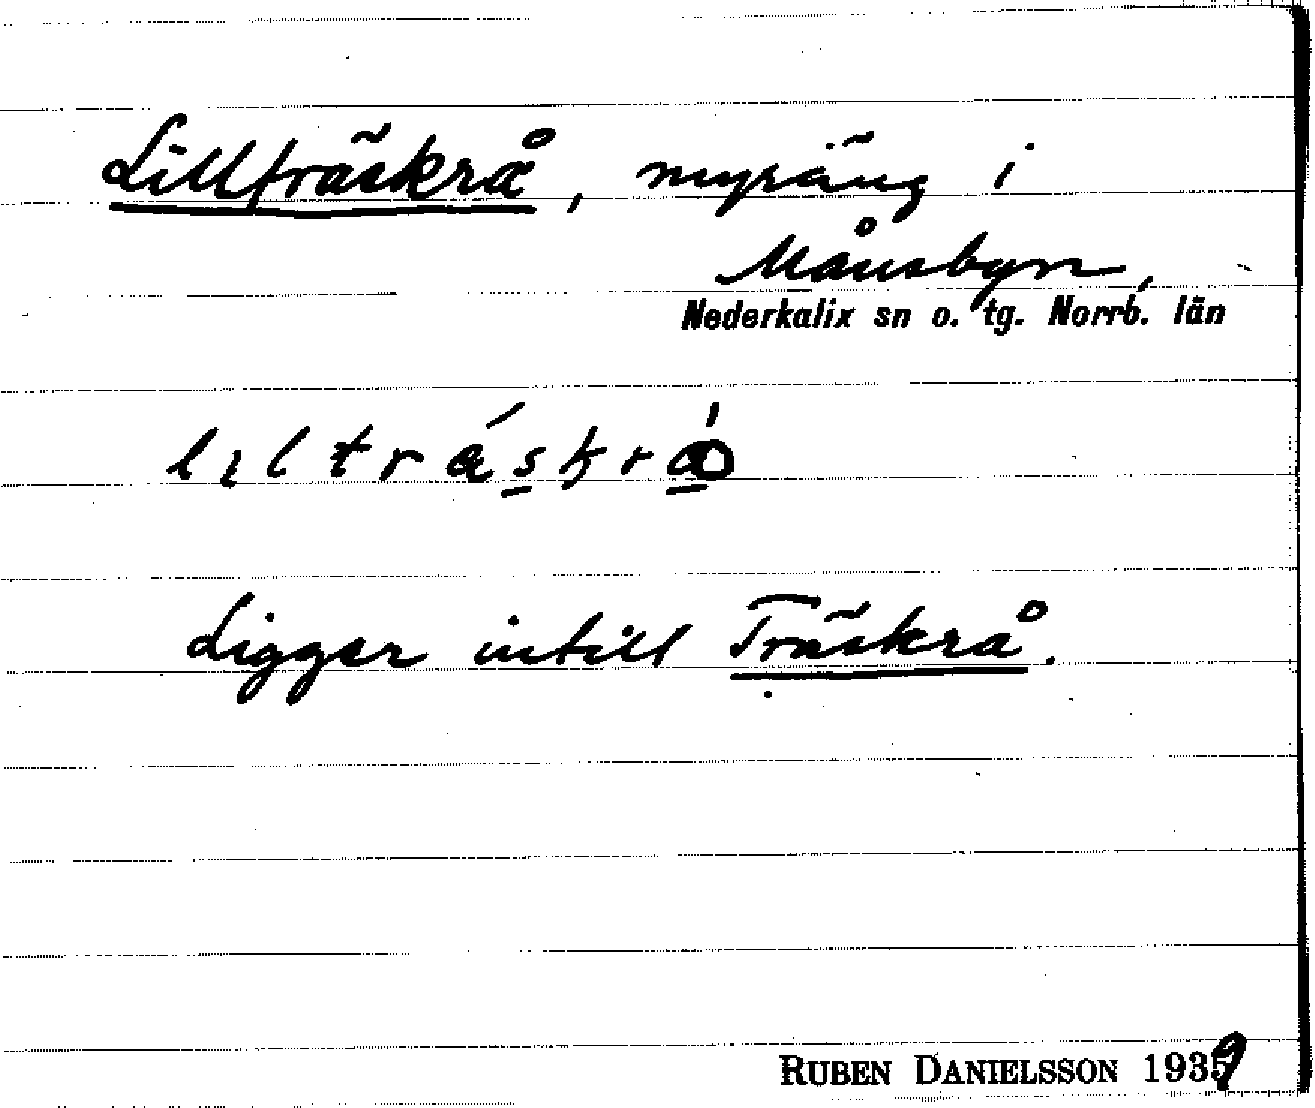 Lillträskrå, myräng i
Månsbyn,
Nederkalix sn o. tg. Norrb. län
Ligger intill Träskrå.
RUBEN DANIELSSON 1939